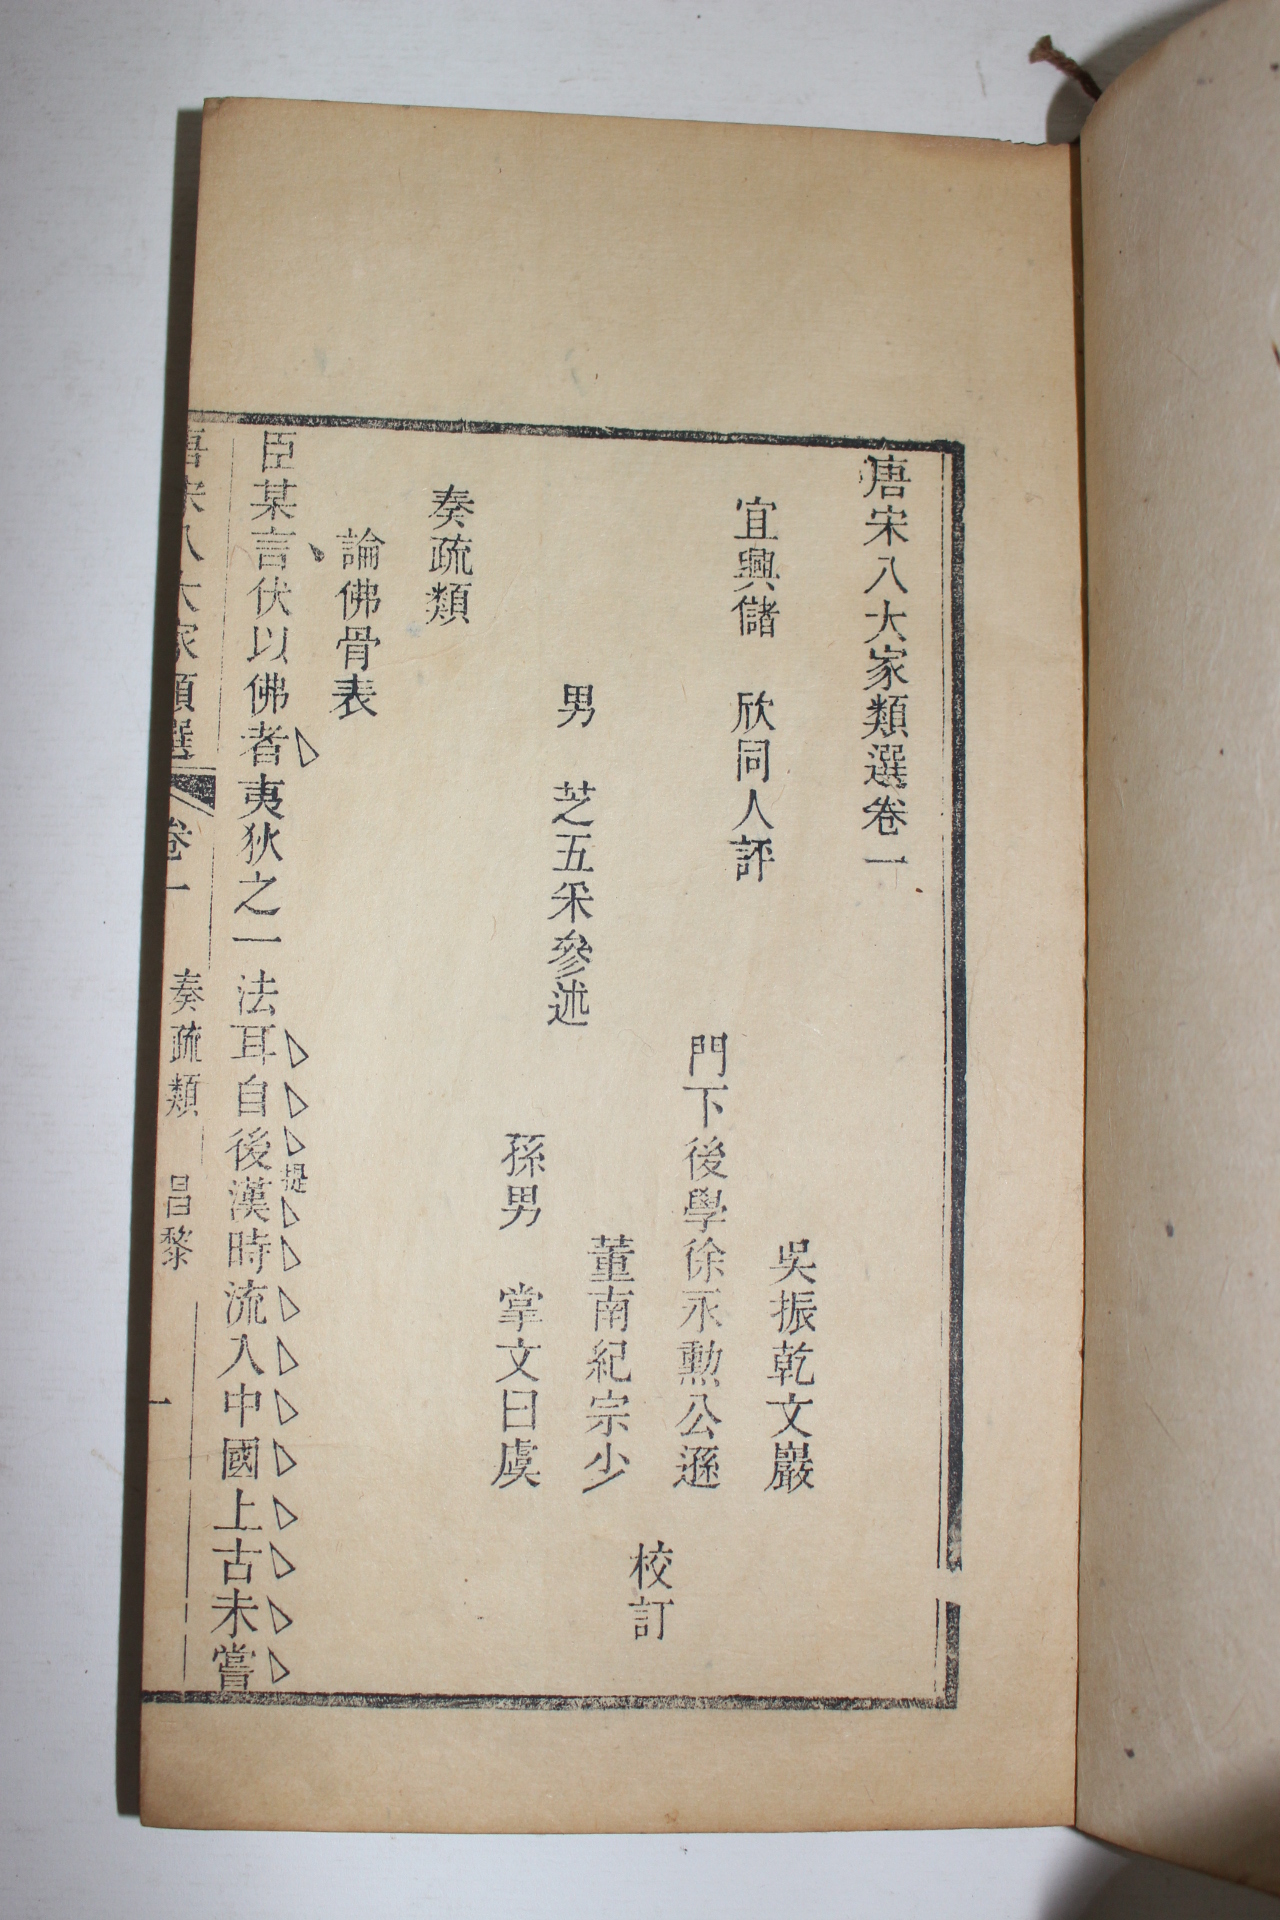 唐宋八大家類選卷一
宜興儲　欣同人評
吳振乾文巖
門下後學徐永勲公遜
董南紀宗少
校訂
男　芝五采參述
孫男　掌文曰虞
奏疏類
論佛骨表
臣某言伏以佛者夷狄之一法耳自後漢時流入中國上古未嘗
提
唐宋八大家類選　卷一　奏疏類　昌黎　一